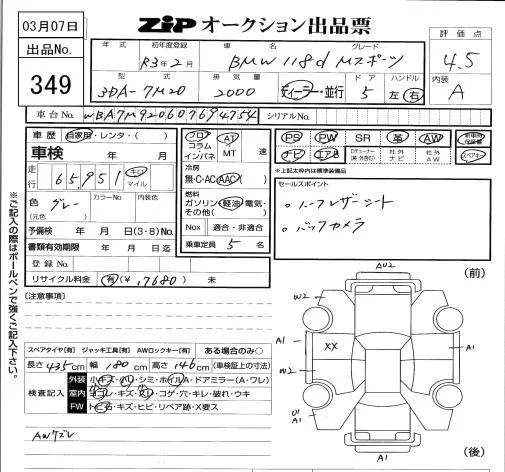 03月07日
ZIP オークション出品票
評価点
4.5
内装
A
出品No.
349
年式 初年度登録 車名 グレード
R3年2月 BMW 118d Mスポーツ
型式 排気量 ドア ハンドル
3DA-7M20 2000 ディーラー・並行 5 左・右
車台No. WBA7M920607694754 シリアルNo.
車歴 自家用・レンタ・( )
車検 年 月
走行 65951 キロ マイル
色 グレー カラーNo. 内装色
(元色)
予備検 年 月 日(3・8)No.
書類有効期限 年 月 日迄
登録No.
リサイクル料金 有(¥ 7680) 未
フロア コラム インパネ
AT MT 速
冷房
無・C・AC・AAC
燃料
ガソリン・軽油・電気・
その他( )
Nox 適合・非適合
乗車定員 5 名
PS PW SR 革 AW 新車時保証書
ナビ エアB Dチューナー 社外ナビ 社外AW
*上記太枠内は標準装備品
セールスポイント
。ハーフレザーシート
。バックカメラ
※ご記入の際はボールペンで強くご記入下さい。
[注意事項]
スペアタイヤ[有] ジャッキ工具[有] AWロックキー[有] ある場合のみ○
長さ 435cm 幅 180cm 高さ 146cm (車検証上の寸法)
検査記入
外装 小キズ・小凹・シミ・ホイルA・ドアミラー(A・ワレ)
室内 ヨゴレ・キズ・スレ・コゲ・穴・キレ・破れ・ウキ
FW トビ石・キズ・ヒビ・リペア跡・X要ス
AWズレ
(前)
AU2
W2
A1
XX
A1
W2
U1
A1
A1
A1
(後)